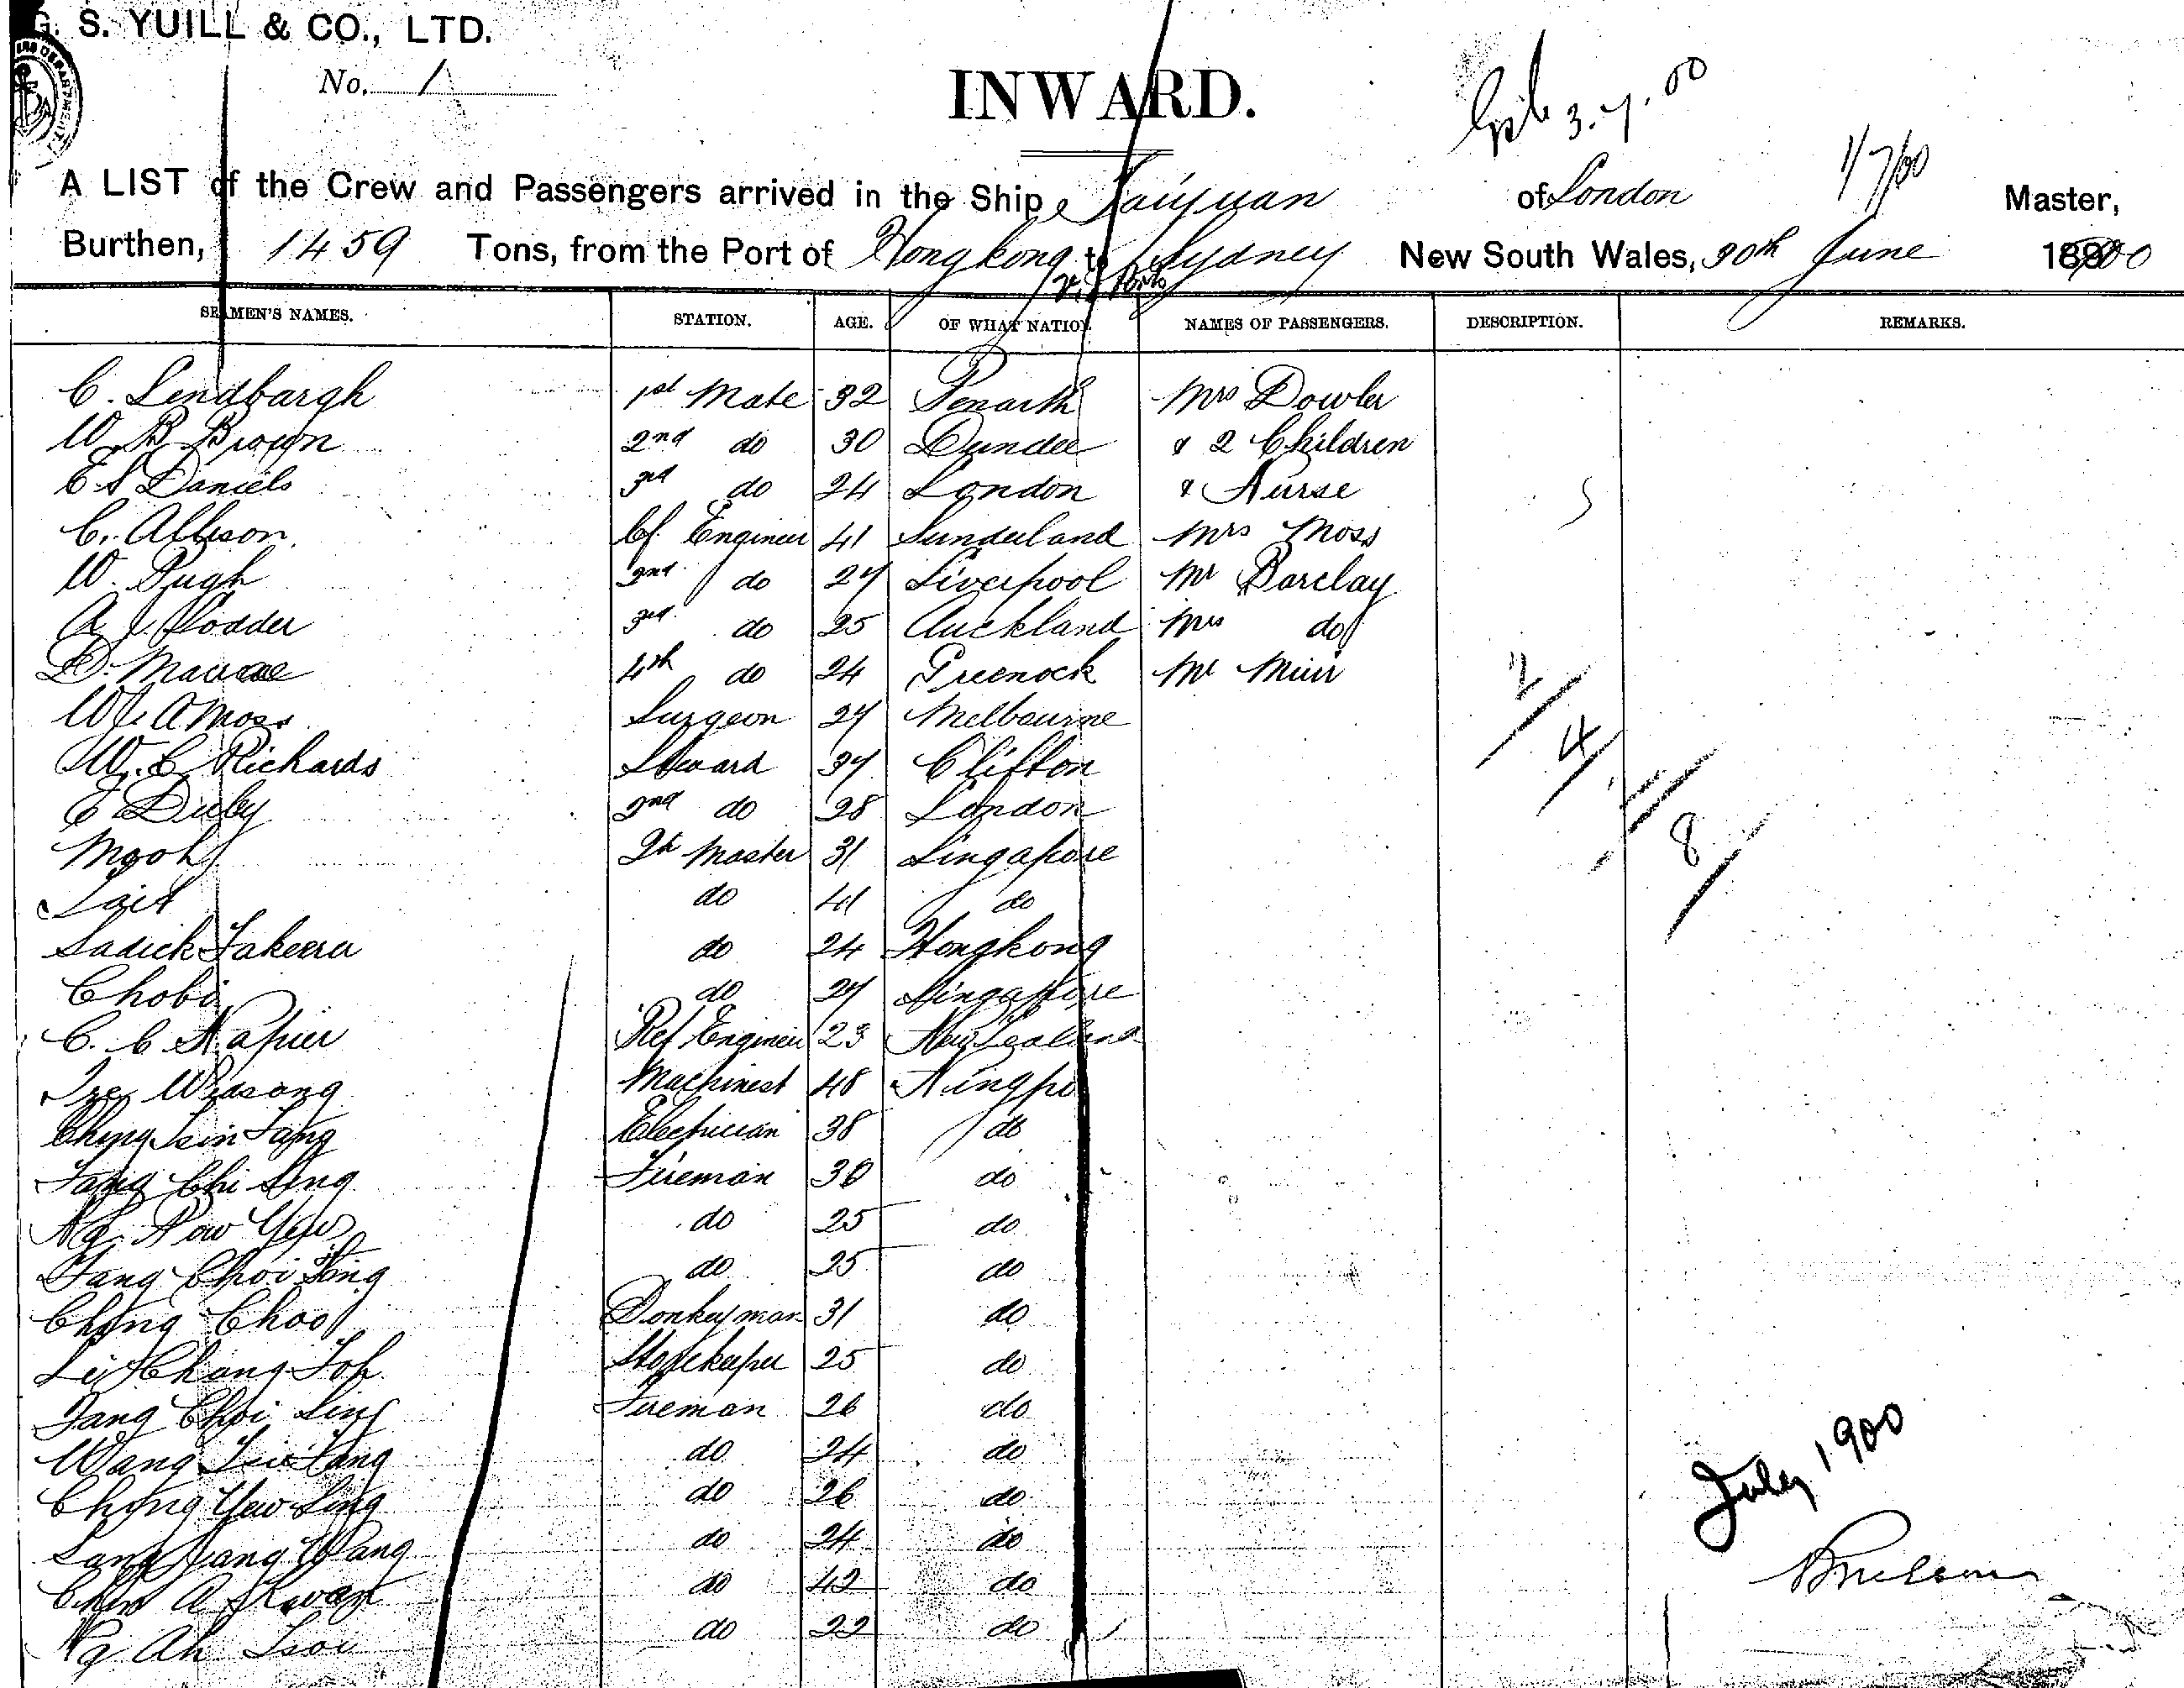 G. S. YUILL & CO., LTD.
No. 1
INWARD.
3.7.00
1/7/00
A LIST of the Crew and Passengers arrived in the Ship Taiyuan of London Master,
Burthen, 1459 Tons, from the Port of Hongkong to Sydney New South Wales, 30th June 1900
SEAMEN'S NAMES. STATION. AGE. OF WHAT NATION. NAMES OF PASSENGERS. DESCRIPTION. REMARKS.
C. Lendbargh 1st Mate 32 Penarth Mrs Dowler
W B Brown 2nd do 30 Dundee & 2 Children
E S Daniels 3rd do 24 London & Nurse
C. Allison Cf. Engineer 41 Sunderland Mrs Moss
W. Pugh 2nd do 27 Liverpool Mr Barclay
A J. Hodder 3rd do 25 Auckland Mrs do
D. Macrae 4th do 24 Greenock Mr Muir
W. A Moss Surgeon 27 Melbourne
W. C Richards Steward 37 Clifton
2nd do 28 London
Qr Master 31 Singapore
Said do 41 do
Sadick Fakeera do 24 Hongkong
Chobi do 27 Singapore
C. C Napier Ref Engineer 23 New Zealand
Machinest 48 Ningpo
Ching Tsin Fang Electrician 38 do
Fang Chi Sing Fireman 30 do
do 25 do
Fang Choi Hing do 25 do
Ching Choo Donkeyman 31 do
Storekeeper 25 do
Fang Choi Sing Fireman 26 do
Wang do 24 do
Ching Yaw Sing do 26 do
do 24 do
do 42 do
Ng Ah Tsoi do 22 do
2/
4/
8/
July 1900